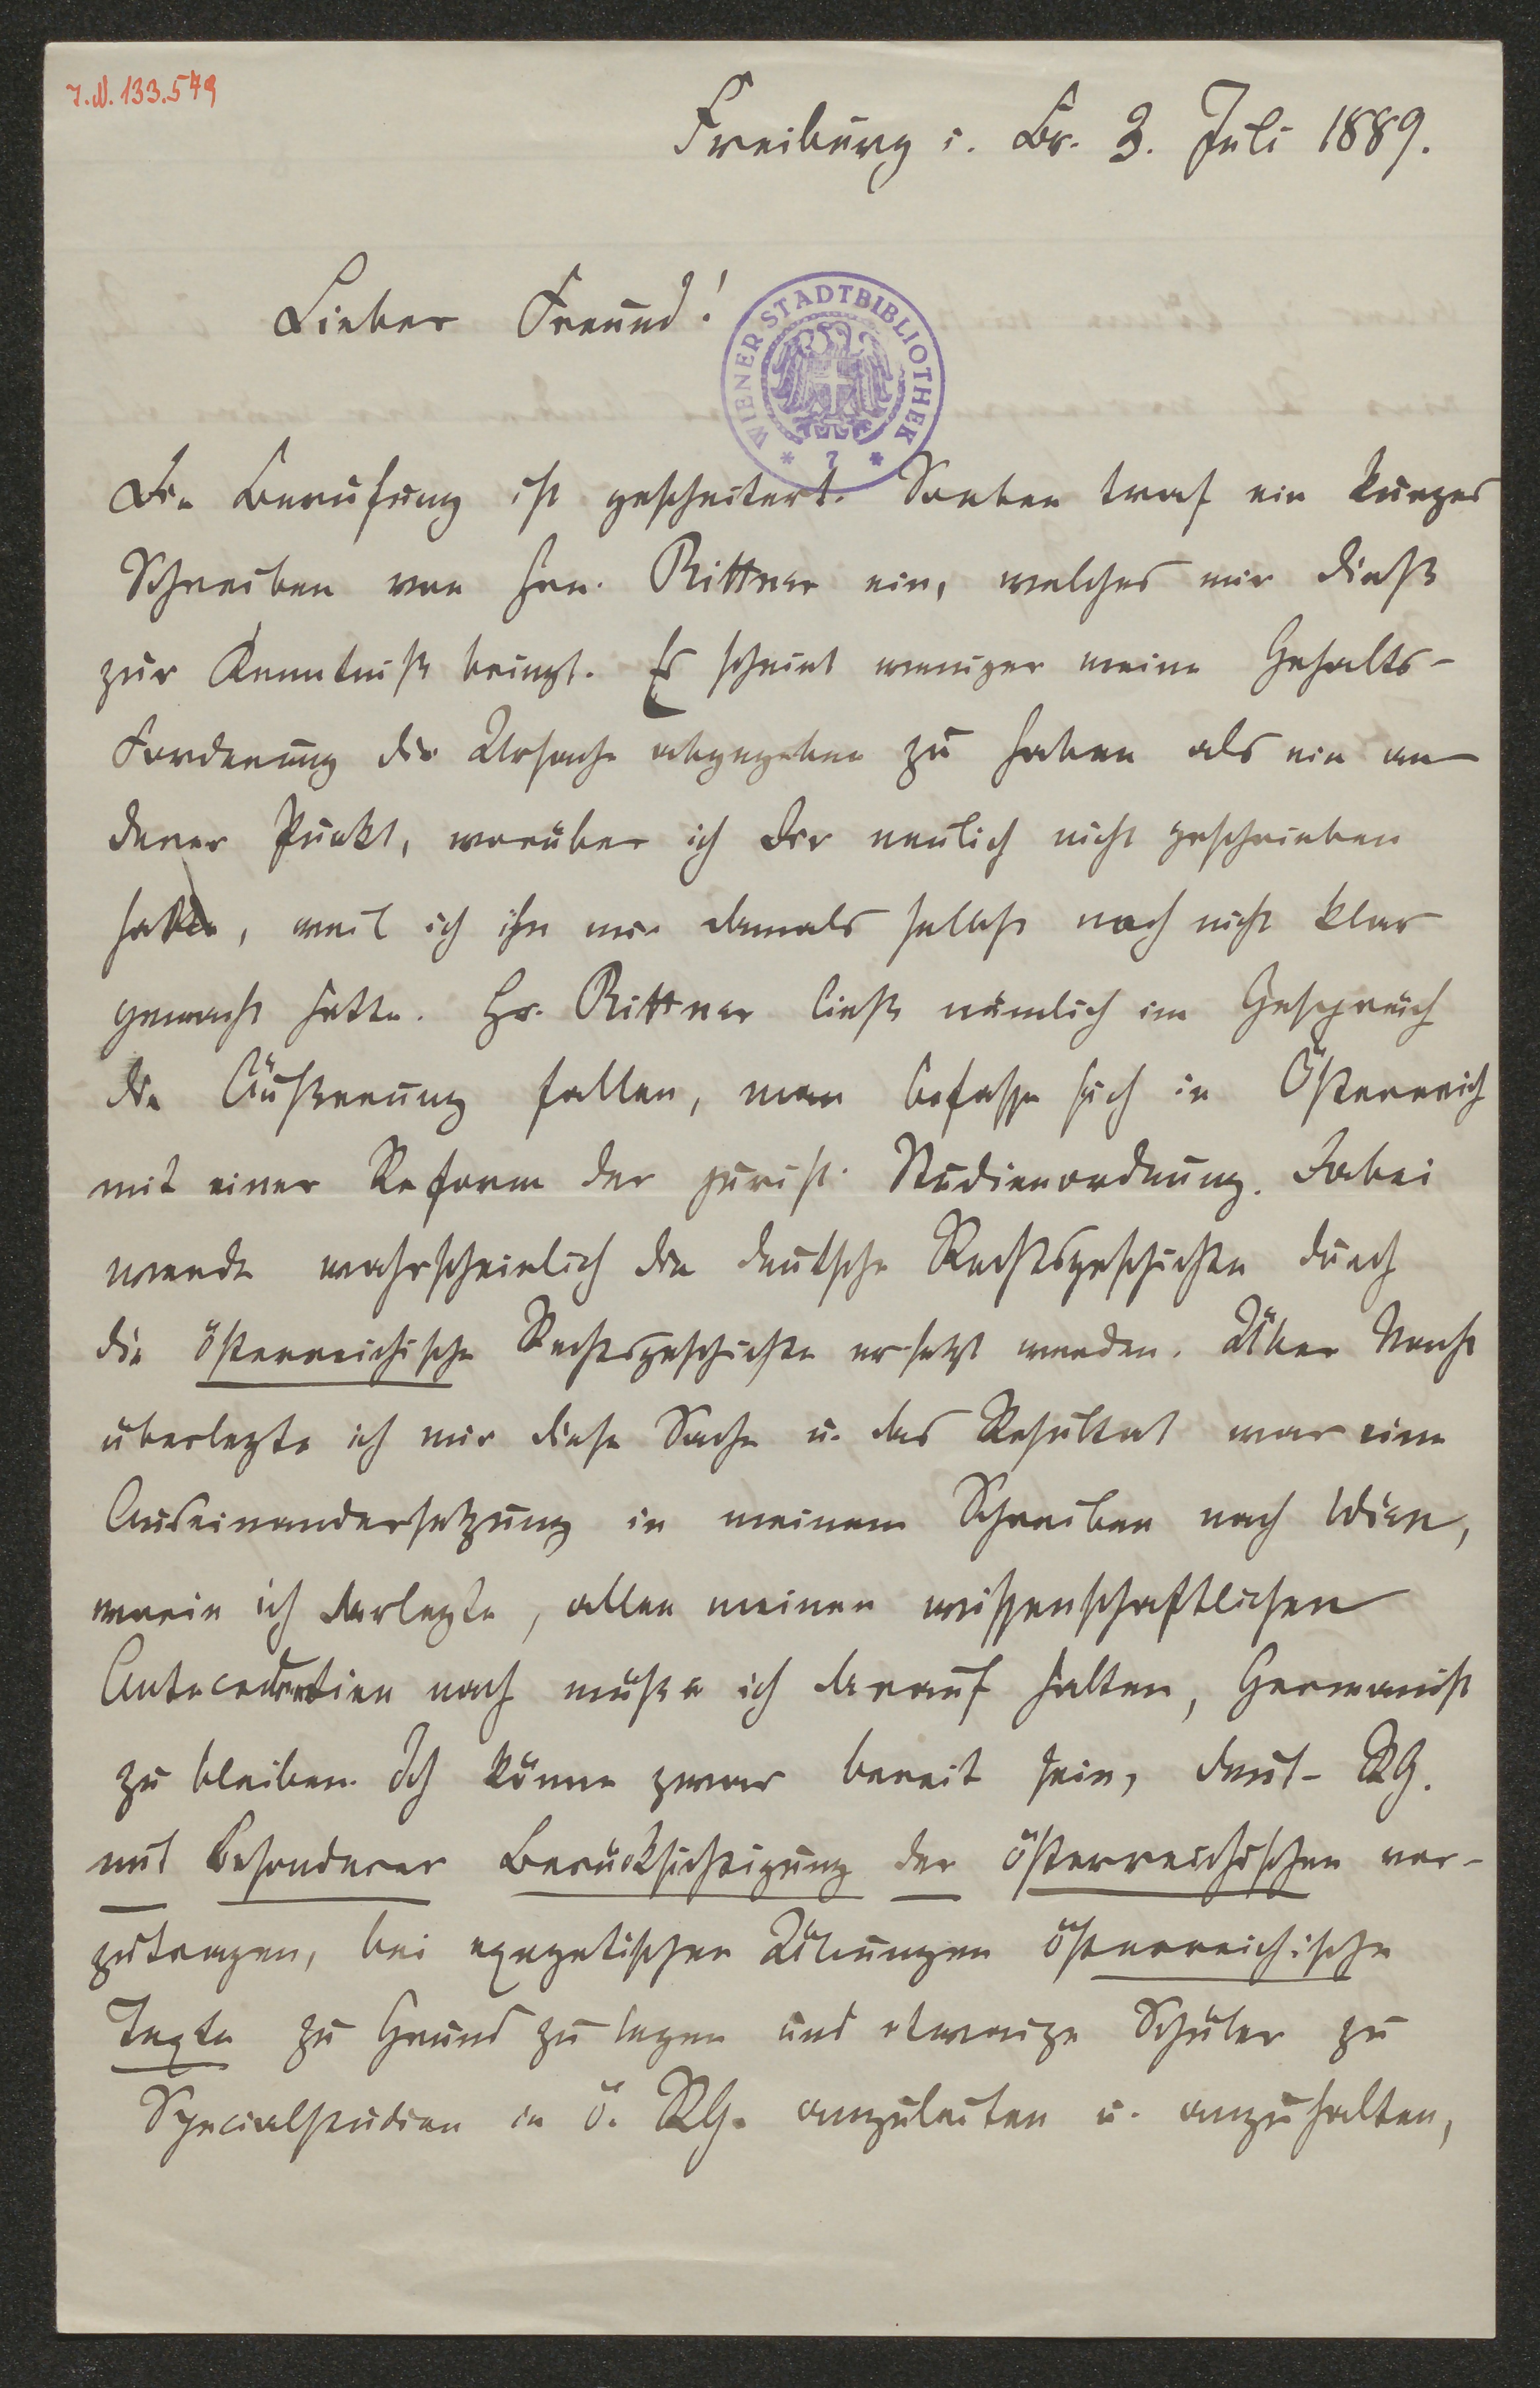 I.N. 133.579
Freiburg i. Br. 3. Juli 1889.
Lieber Freund!
WIENER STADTBIBLIOTHEK
* 7 *
Die Berufung ist gescheitert. Soeben traf ein kurzes
Schreiben von Hrn. Rittner ein, welches mir dieß
zur Kenntniß bringt. Es scheint weniger meine Gehalts-
Forderung die Ursache abgegeben zu haben als ein an-
derer Punkt, worüber ich Dir neulich nicht geschrieben
habe, weil ich ihn mir damals selbst noch nicht klar
gemacht hatte. Hr. Rittner ließ nämlich im Gespräch
die Äußerung fallen, man befasse sich in Österreich
mit einer Reform der jurist. Studienordnung. Dabei
werde wahrscheinlich die deutsche Rechtsgeschichte durch
die österreichische Rechtsgeschichte ersetzt werden. Über Nacht
überlegte ich mir diese Sache u. das Resultat war eine
Auseinandersetzung in meinem Schreiben nach Wien,
worin ich darlegte, allen meinen wissenschaftlichen
Antecedentien nach müße ich darauf halten, Germanist
zu bleiben. Ich könne zwar bereit sein, deut- RG.
mit besonderer Berücksichtigung der österreichischen vor-
zutragen, bei exegetischen Übungen österreichische
Texte zu Grund zu legen und etwaige Schüler zu
Specialstudien in ö. RG. anzuleiten u. anzuhalten,